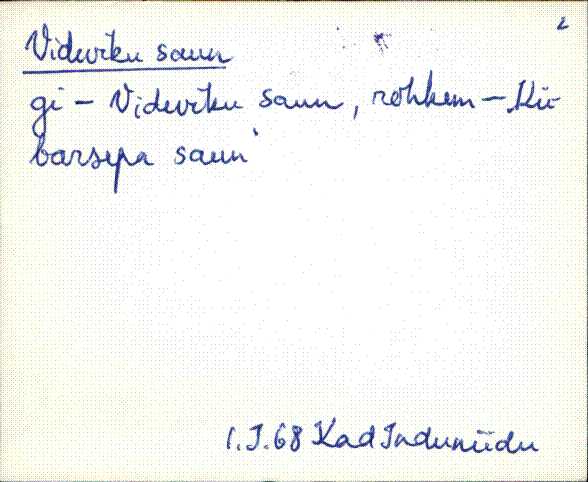 2
Videviku saun
gi – Videviku saun, rohkem – Kü-
barsepa saun
1.I.68 Kad Induniidu